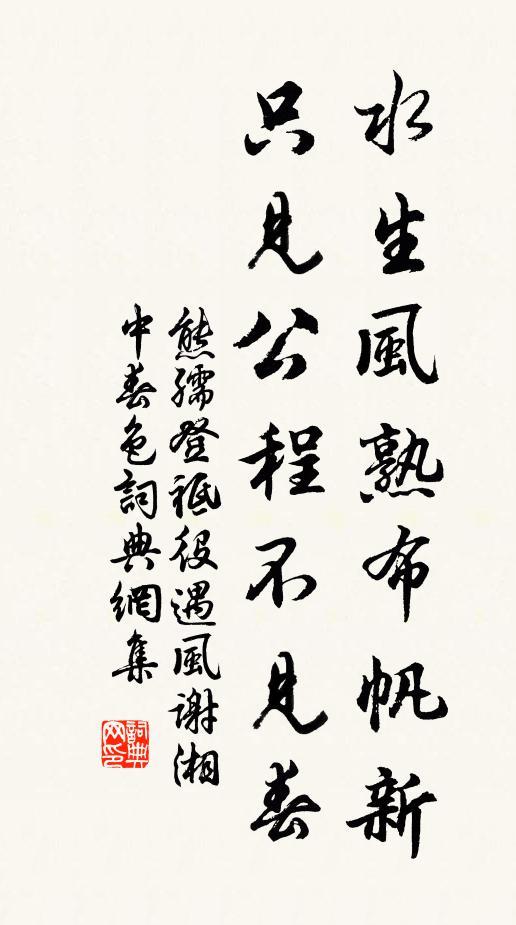 水生風熟布帆新
只見公程不見春
熊孺登祗役遇風謝湘
中春色詞典網集
詞典
网印